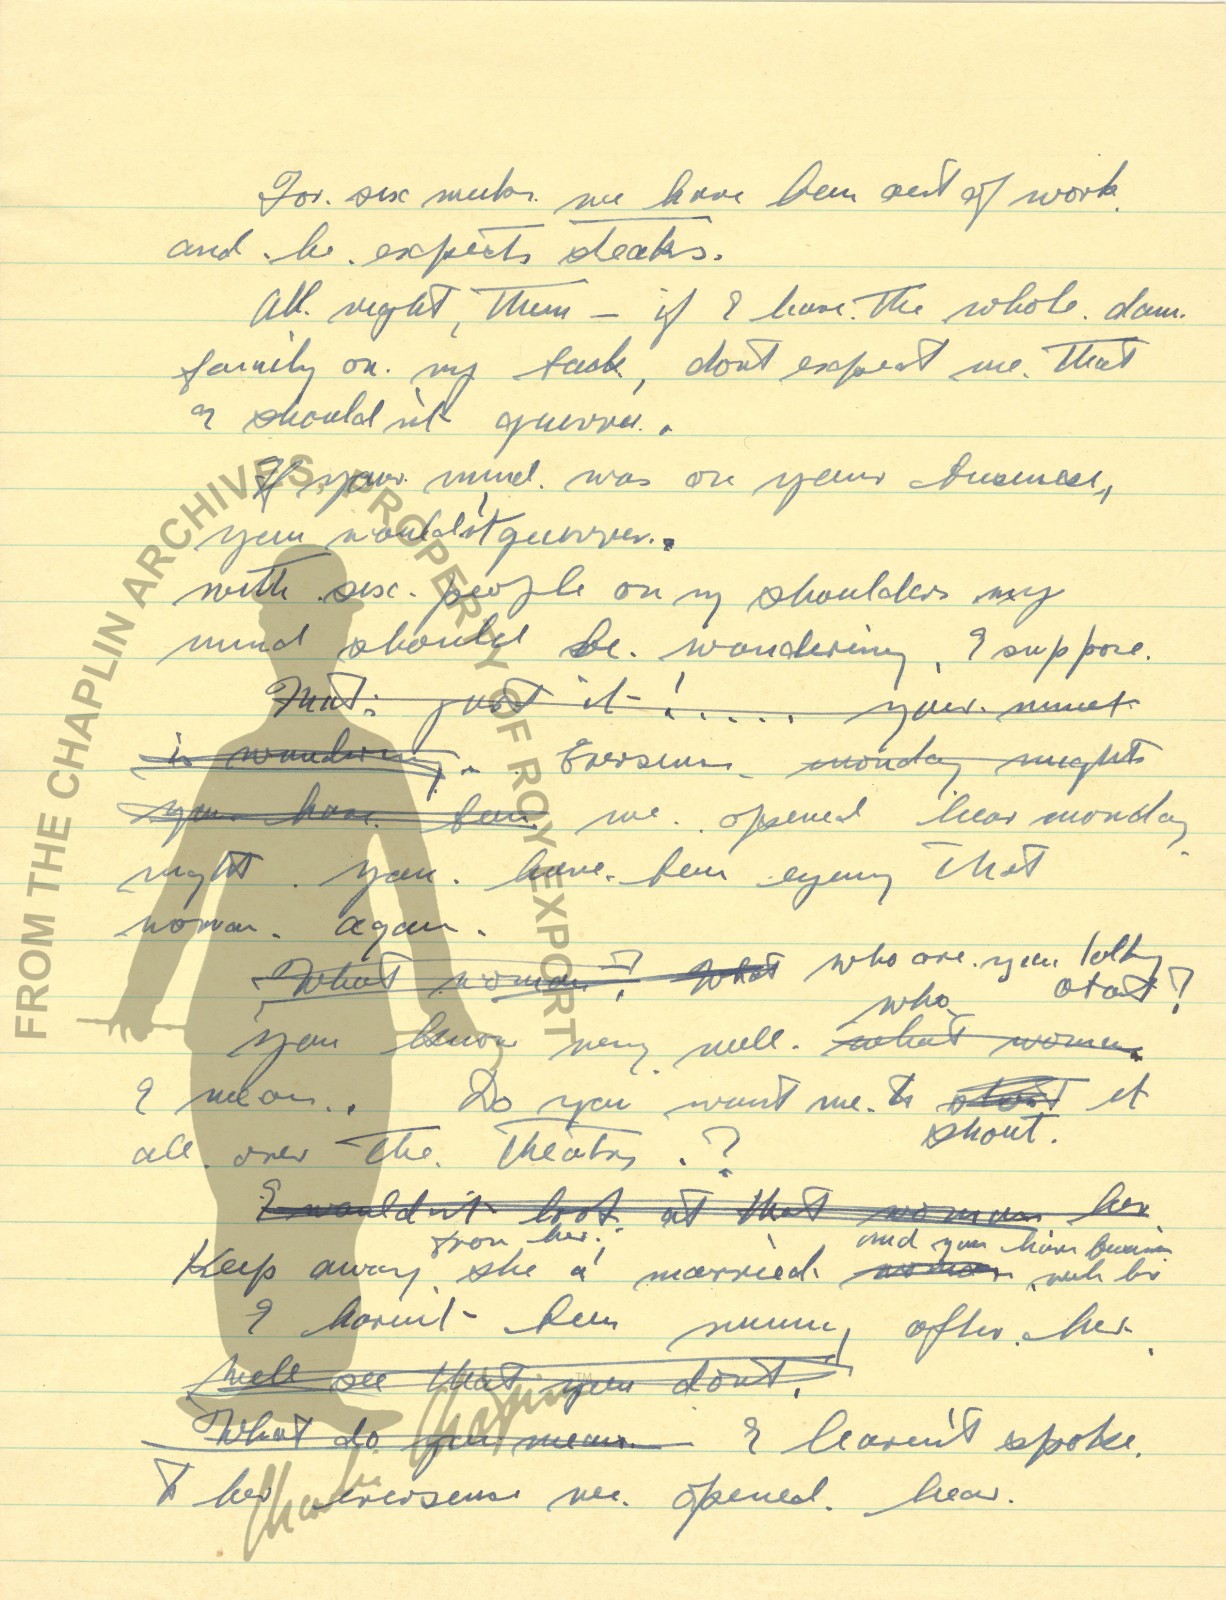 For six weeks we have been out of work
and he expects steaks.
All right, then — if I have the whole dam
family on my back, dont expect me that
I should'nt quiver.
If your mind was on your buisness,
you would'nt quiver.
with six people on my shoulders my
mind should be wandering, I suppose.
That's just it! ..... your mind
is wandering. Eversince monday nights
you have been we opened hear monday
night you have been eyeing that
woman again.
What woman? What who are you talking
about?
who
you know very well what woman
I mean.. Do you want me to shout it
shout.
all over the theatre.?
I wouldn't look at that woman her
from her. and you have buisness
Keep away she a married woman with her
I havn't been running after her.
well see that you dont.
What do you mean I havn't spoke
to her eversense we opened hear.
FROM THE CHAPLIN ARCHIVES, PROPERTY OF ROY EXPORT
Charlie Chaplin™